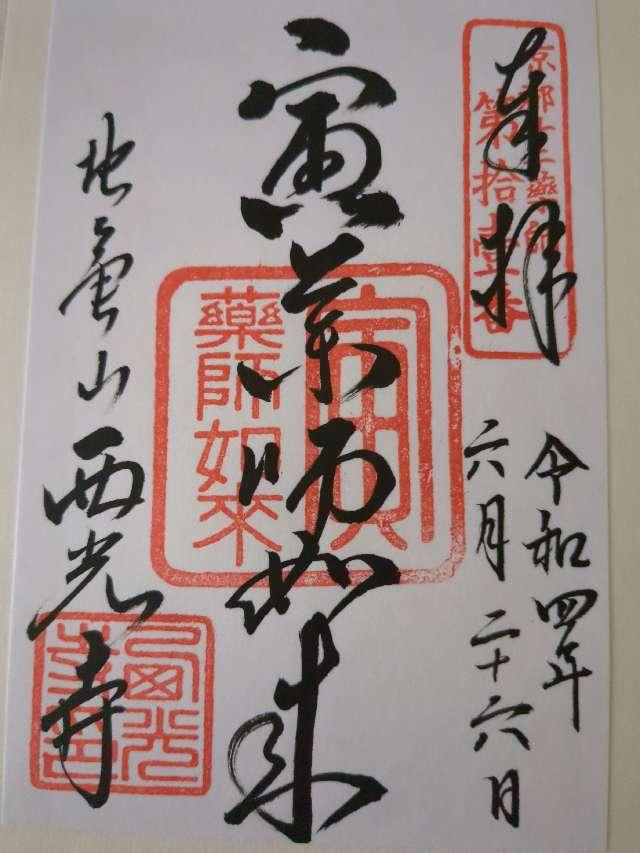 奉拝
京都十二薬師
第拾壹番
令和四年
六月二十六日
寅薬師如来
寅
藥師如來
西光寺